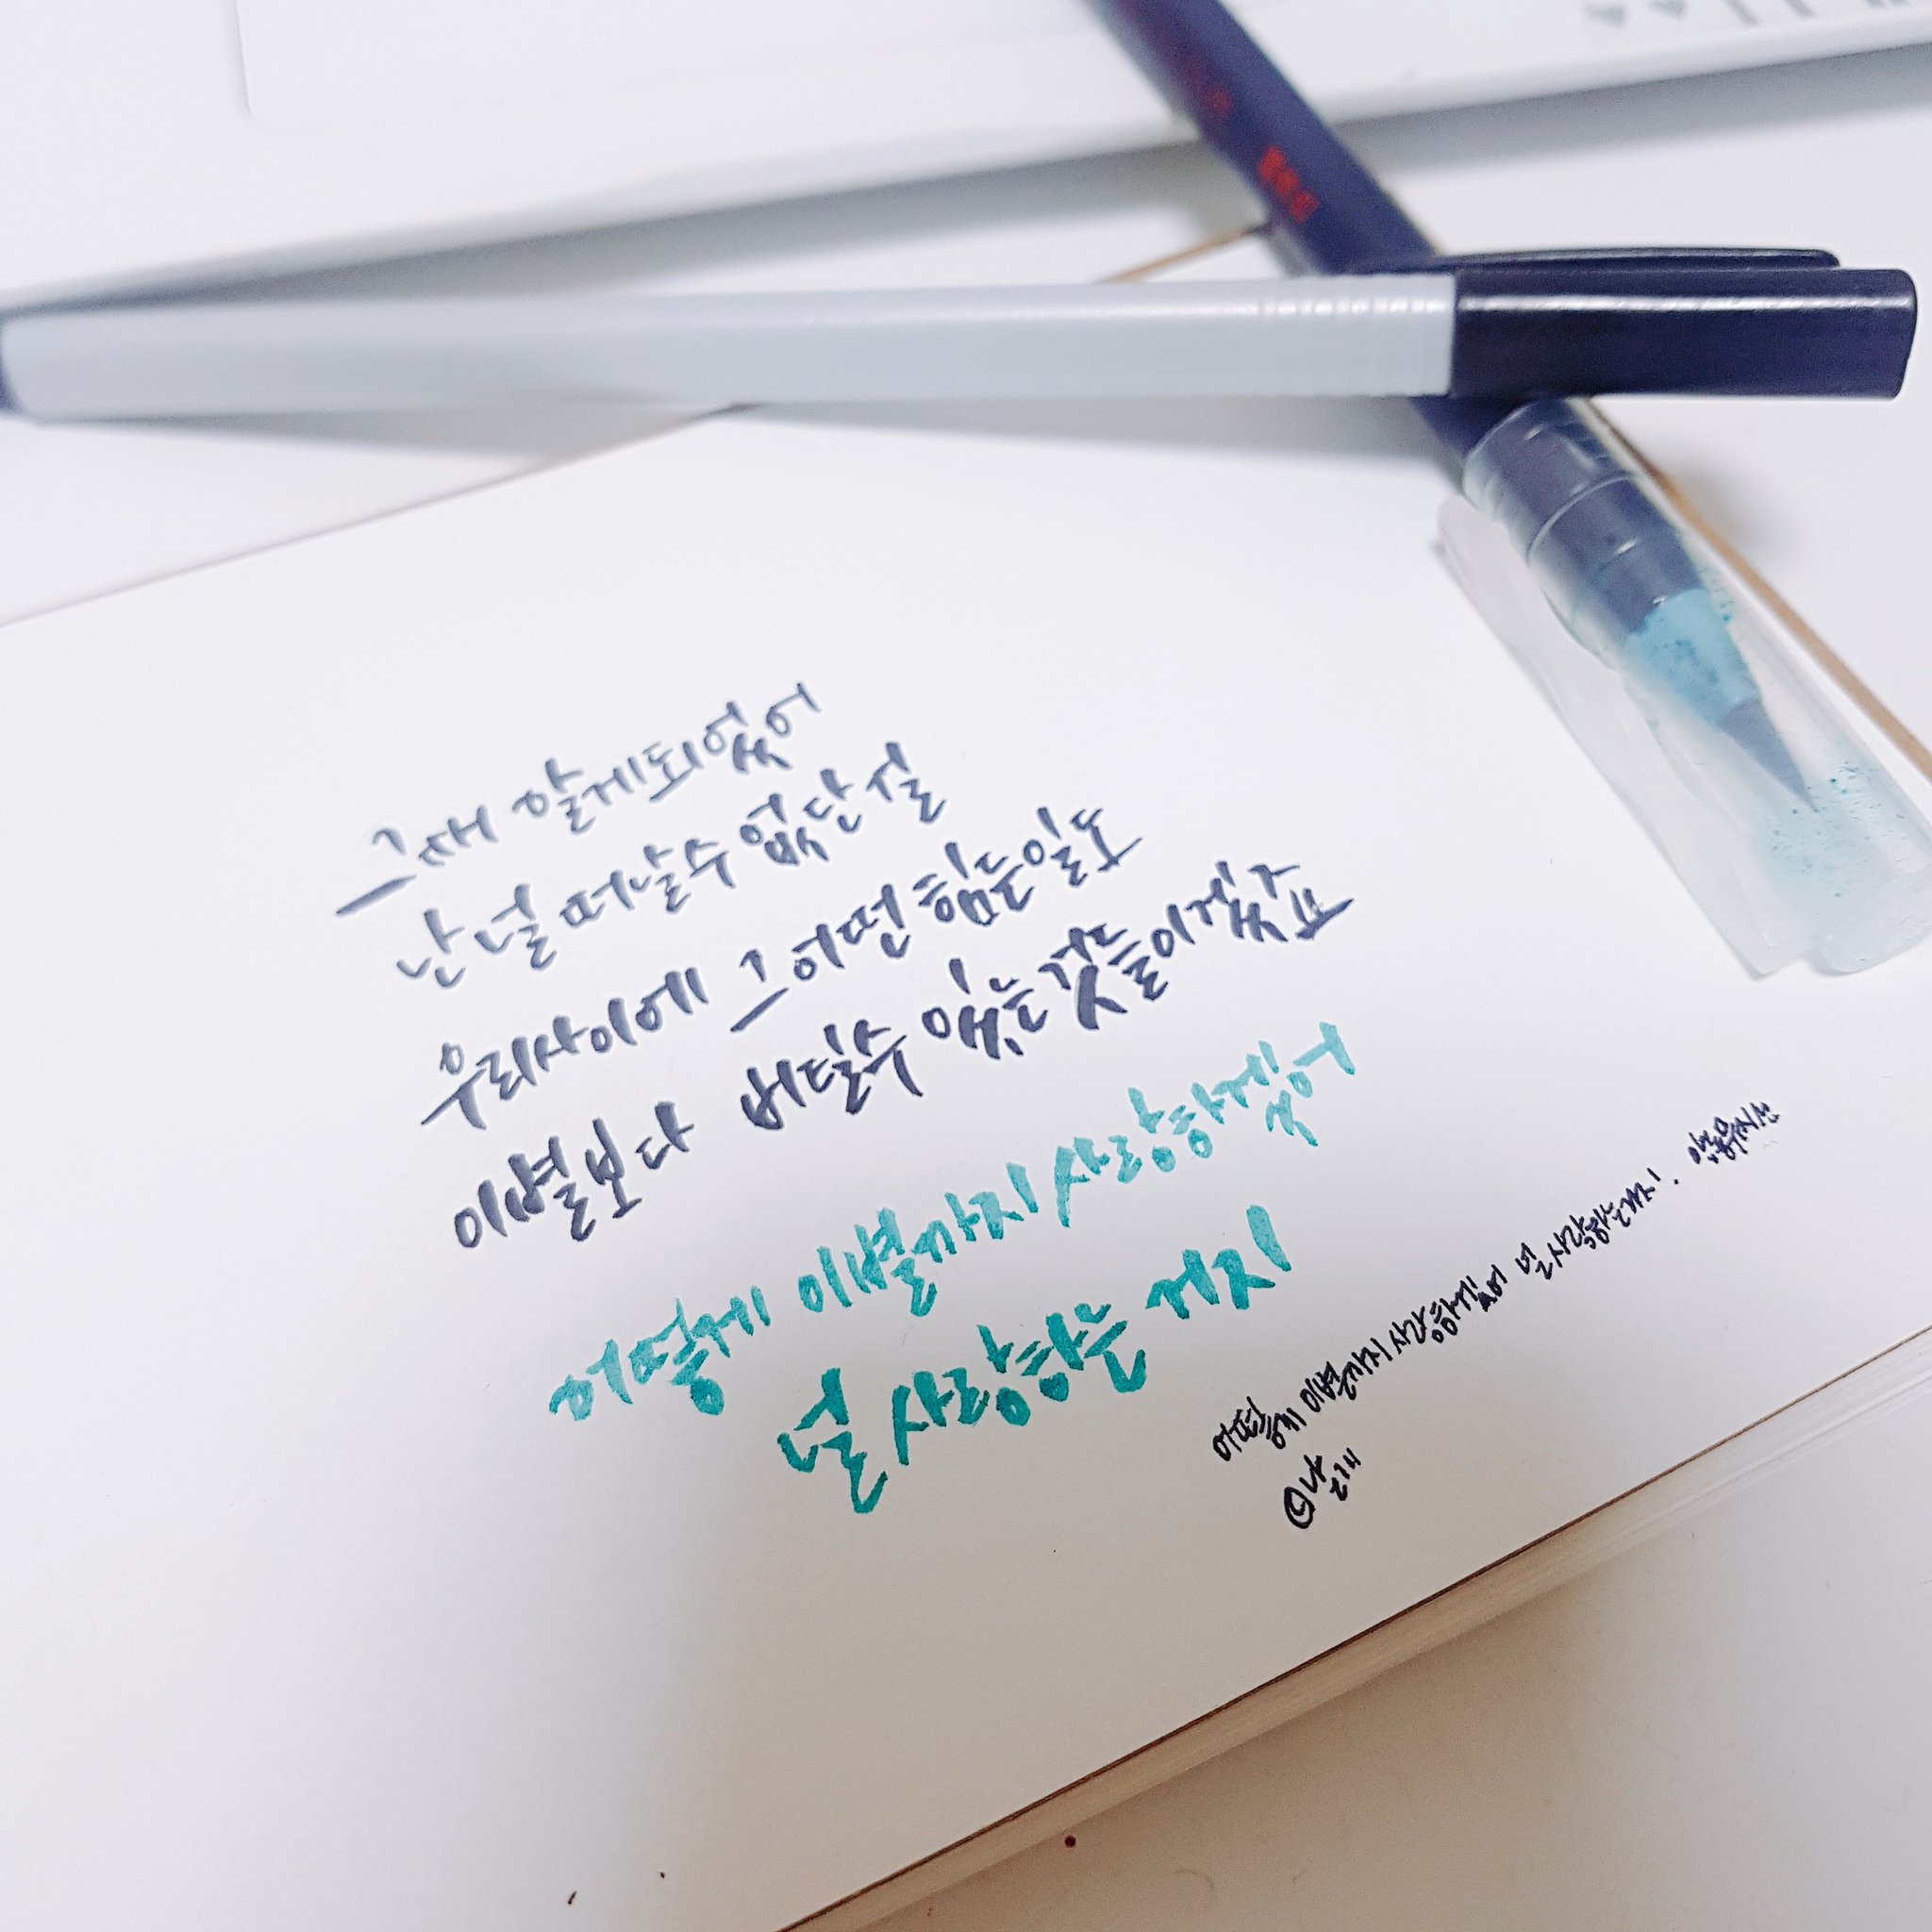 그때 알게되었어
난 널 떠날수 없단 걸
우리사이에 그 어떤 힘든일도
이별보다 버틸수 있는 것들이었죠
어떻게 이별까지 사랑하겠어
널 사랑하는 거지
어떻게 이별까지 사랑하겠어 널 사랑하는거지. 악뮤
©날개